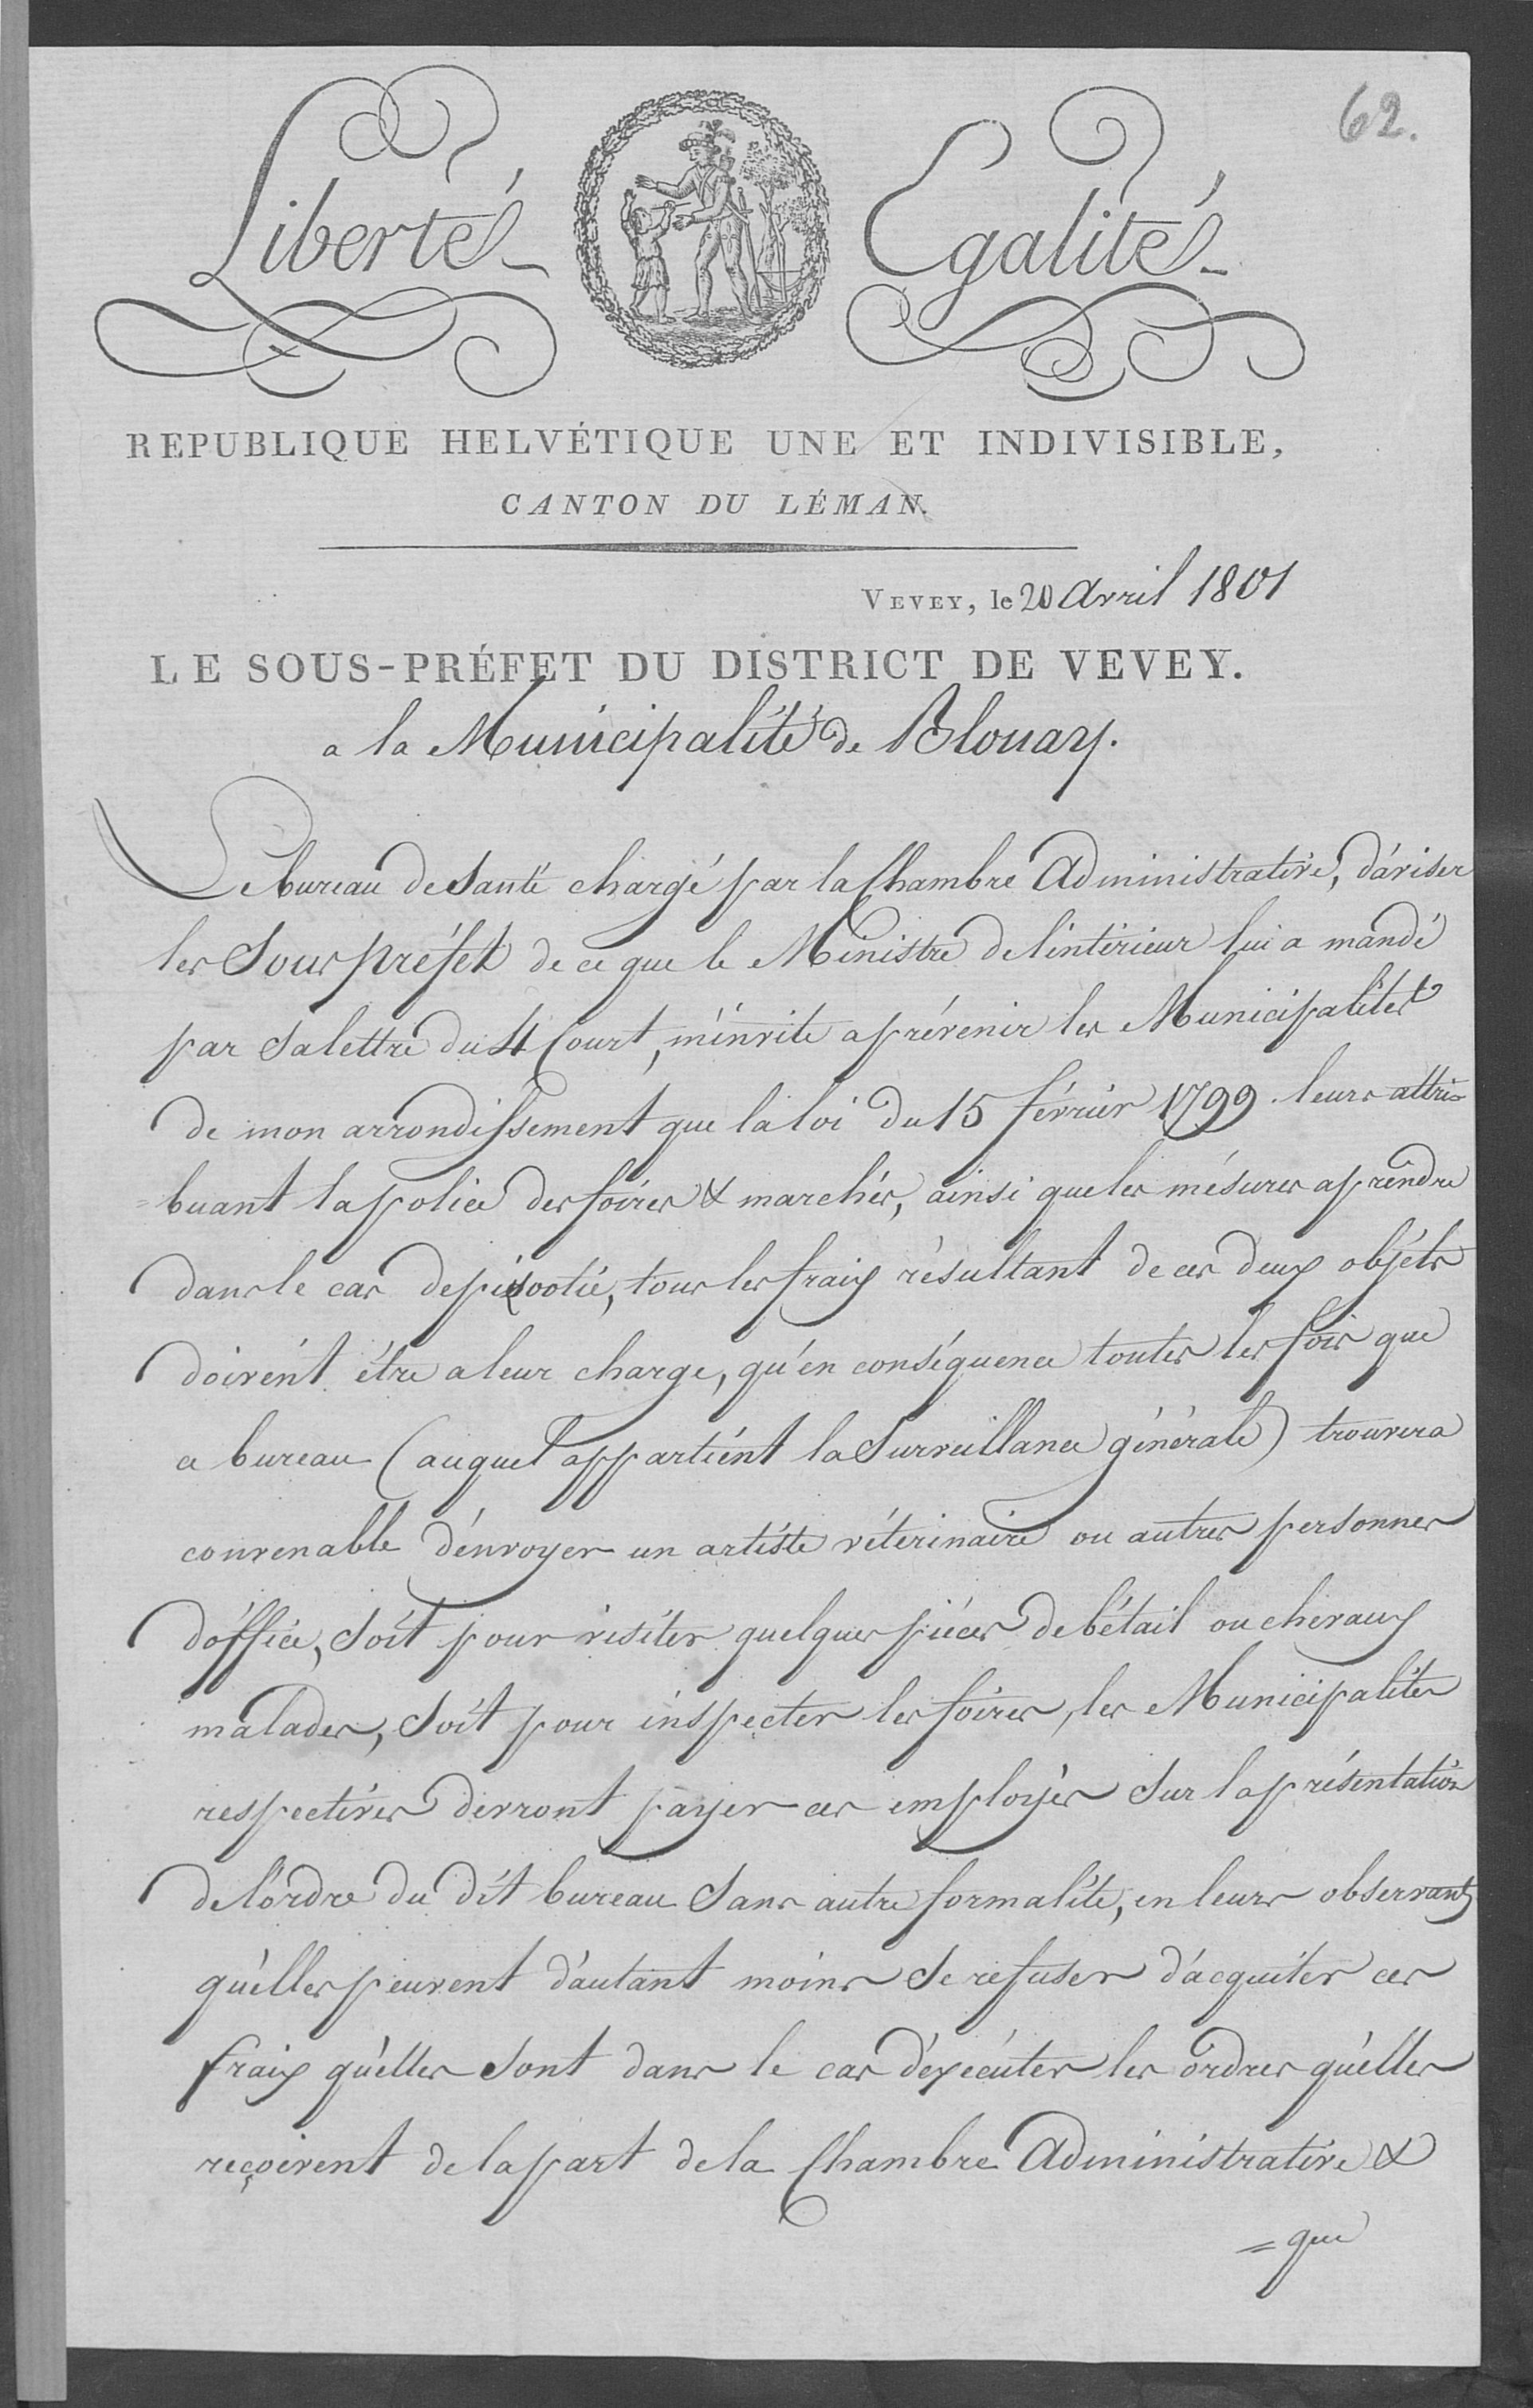 62.
Liberté Egalité
REPUBLIQUE HELVÉTIQUE UNE ET INDIVISIBLE,
CANTON DU LÉMAN.
VEVEY, le 20 Avril 1801
LE SOUS-PRÉFET DU DISTRICT DE VEVEY.
a la Municipalité de Blonay.
Le bureau de Santé chargé par la Chambre Administrative, d'aviser
les Sous préfet de ce que le Ministre de l'intérieur lui a mandé
par Sa lettre du 4 Court, m'invite a prévenir les Municipalités
de mon arrondissement que la loi du 15 février 1799. leurs attri=
=buant la police des foires & marchés, ainsi que les mésures a prendre
dans le cas d'epizootie, tous les fraix résultant de ces deux objéts
doivent être a leur charge, qu'en conséquence toutes les fois que
ce bureau (auquel appartient la Surveillance générale) trouvera
convenable d'envoyer un artiste véterinaire ou autres personnes
d'office, Soit pour visiter quelques piéces de bétail ou chevaux
malades, Soit pour inspecter les foires, les Municipalités
respectives devront payer ces employés Sur la présentation
de l'ordre du dit bureau Sans autre formalité, en leurs observant
qu'elles peuvent d'autant moins Se refuser d'acquiter ces
fraix qu'elles Sont dans le cas d'exécuter les ordres qu'elles
reçoivent de la part de la Chambre Administrative &
= que